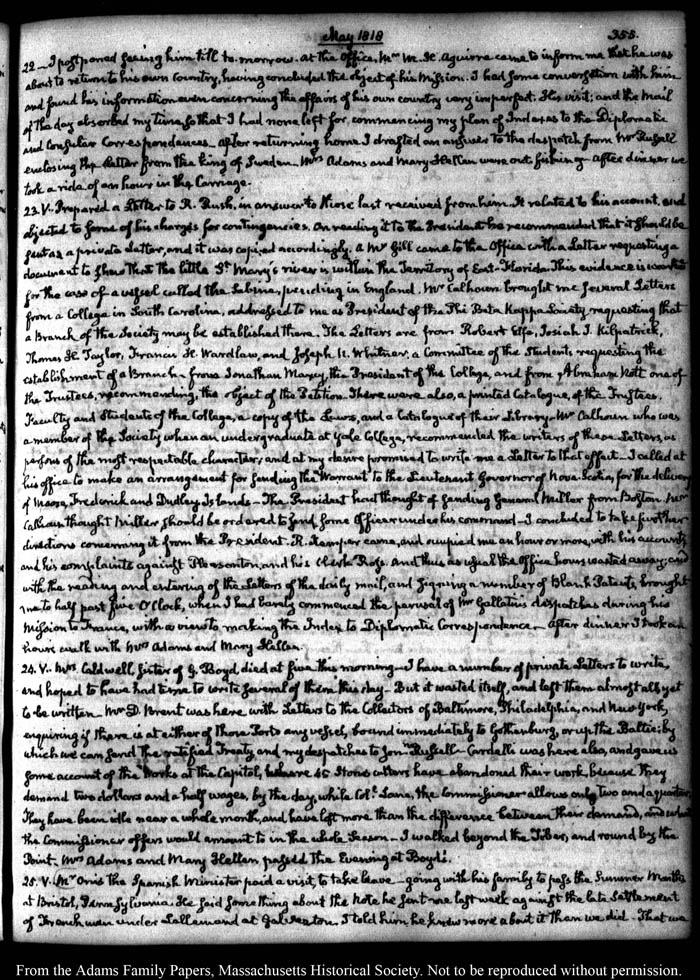 May 1818
355.
22. – I postponed seeing him till to-morrow. at the Office, Mr M. H. Aguirre came to inform me that he was
about to return to his own Country, having concluded the object of his Mission. I had some conversation with him
and found his information even concerning the affairs of his own country very imperfect. His visit, and the Mail
of the day absorbed my time, so that I had none left for commencing my plan of Indexes to the Diplomatic
and Consular Correspondences. after returning home I drafted an answer to the despatch from Mr Russell
enclosing the Letter from the king of Sweden. Mrs Adams and Mary Hellen were out fishing – after dinner we
took a ride of an hour in the Carriage.
23. V. Prepared a Letter to R. Rush, in answer to those last received from him. It related to his account, and
objected to some of his charges for contingencies. On reading it to the President he recommended that it should be
sent as a private Letter, and it was copied accordingly. a Mr Gill came to the Office with a Letter requesting a
document to shew that the little St. Mary's river is within the Territory of East-Florida. This evidence is wanted
for the case of a vessel called the Sabina, pending in England. Mr Calhoun brought me several Letters
from a College in South Carolina, addressed to me as President of the Phi Beta Kappa Society requesting that
a Branch of the Society may be established there. The Letters are from Robert Elfe, Josiah J. Kilpatrick,
Thomas H. Taylor, Francis H. Wardlaw, and Joseph N. Whitner, a Committee of the Students requesting the
establishment of a Branch – from Jonathan Maxcy, the President of the College, and from Abraham Nott one of
the Trustees, recommending, the object of the Petition. There were also, a printed Catalogue, of the Trustees,
Faculty and Students of the College, a copy of the Laws, and a Catalogue of their Library. Mr Calhoun who was
a member of the Society when an undergraduate at Yale College, recommended the writers of these Letters, as
persons of the most respectable character, and at my desire promised to write me a Letter to that effect – I called at
his office to make an arrangement for sending the Warrant to the Lieutenant Governor of Nova Scotia, for the delivery
of Moose, Frederick and Dudley Islands – The President had thought of sending General Miller from Boston. Mr
Calhoun thought Miller should be ordered to send some Officer under his command – I concluded to take further
directions concerning it from the President. R. Kemper came, and occupied me an hour or more, with his accounts
and his complaints against Pleasonton, and his Clerk Ross. And thus as usual the office hours wasted away; and
with the reading and entering of the Letters of the daily mail, and signing a number of Blank Patents, brought
me to half past five O'Clock, when I had barely commenced the perusal of Mr Gallatin's despatches during his
Mission to France, with a view to making the Index to Diplomatic Correspondence. – After dinner I took an
hours walk with Mrs Adams and Mary Hellen.
24. V. Mrs Caldwell, Sister of G. Boyd, died at five this morning – I have a number of private Letters to write,
and hoped to have had time to write several of them this day – But it wasted itself, and left them almost all yet
to be written. Mr D. Brent was here with Letters to the Collectors of Baltimore, Philadelphia, and New York,
enquiring if there is at either of those Ports any vessel, bound immediately to Gothenburg, or up the Baltic; by
which we can send the ratified Treaty and my despatches to Jonn Russell – Cardelli was here also, and gave us
some account of the works at the Capitol, where 45 Stone cutters have abandoned their work, because they
demand two dollars and a half wages, by the day, while Coll. Lane, the Commissioner allows only two and a quarter.
They have been idle near a whole month, and have lost more than the difference between their demand, and what
the Commissioner offers would amount to in the whole season – I walked beyond the Tiber, and round by the
Point. Mrs Adams and Mary Hellen passed the Evening at Boyd's.
25. V. Mr Onis the Spanish Minister paid a visit, to take leave – going with his family to pass the Summer Months
at Bristol, Pennsylvania. He said something about the Note he sent me last week against the late settlement
of Frenchmen under Lallemand at Galveston. I told him, he knew more about it than we did. That we
From the Adams Family Papers, Massachusetts Historical Society. Not to be reproduced without permission.